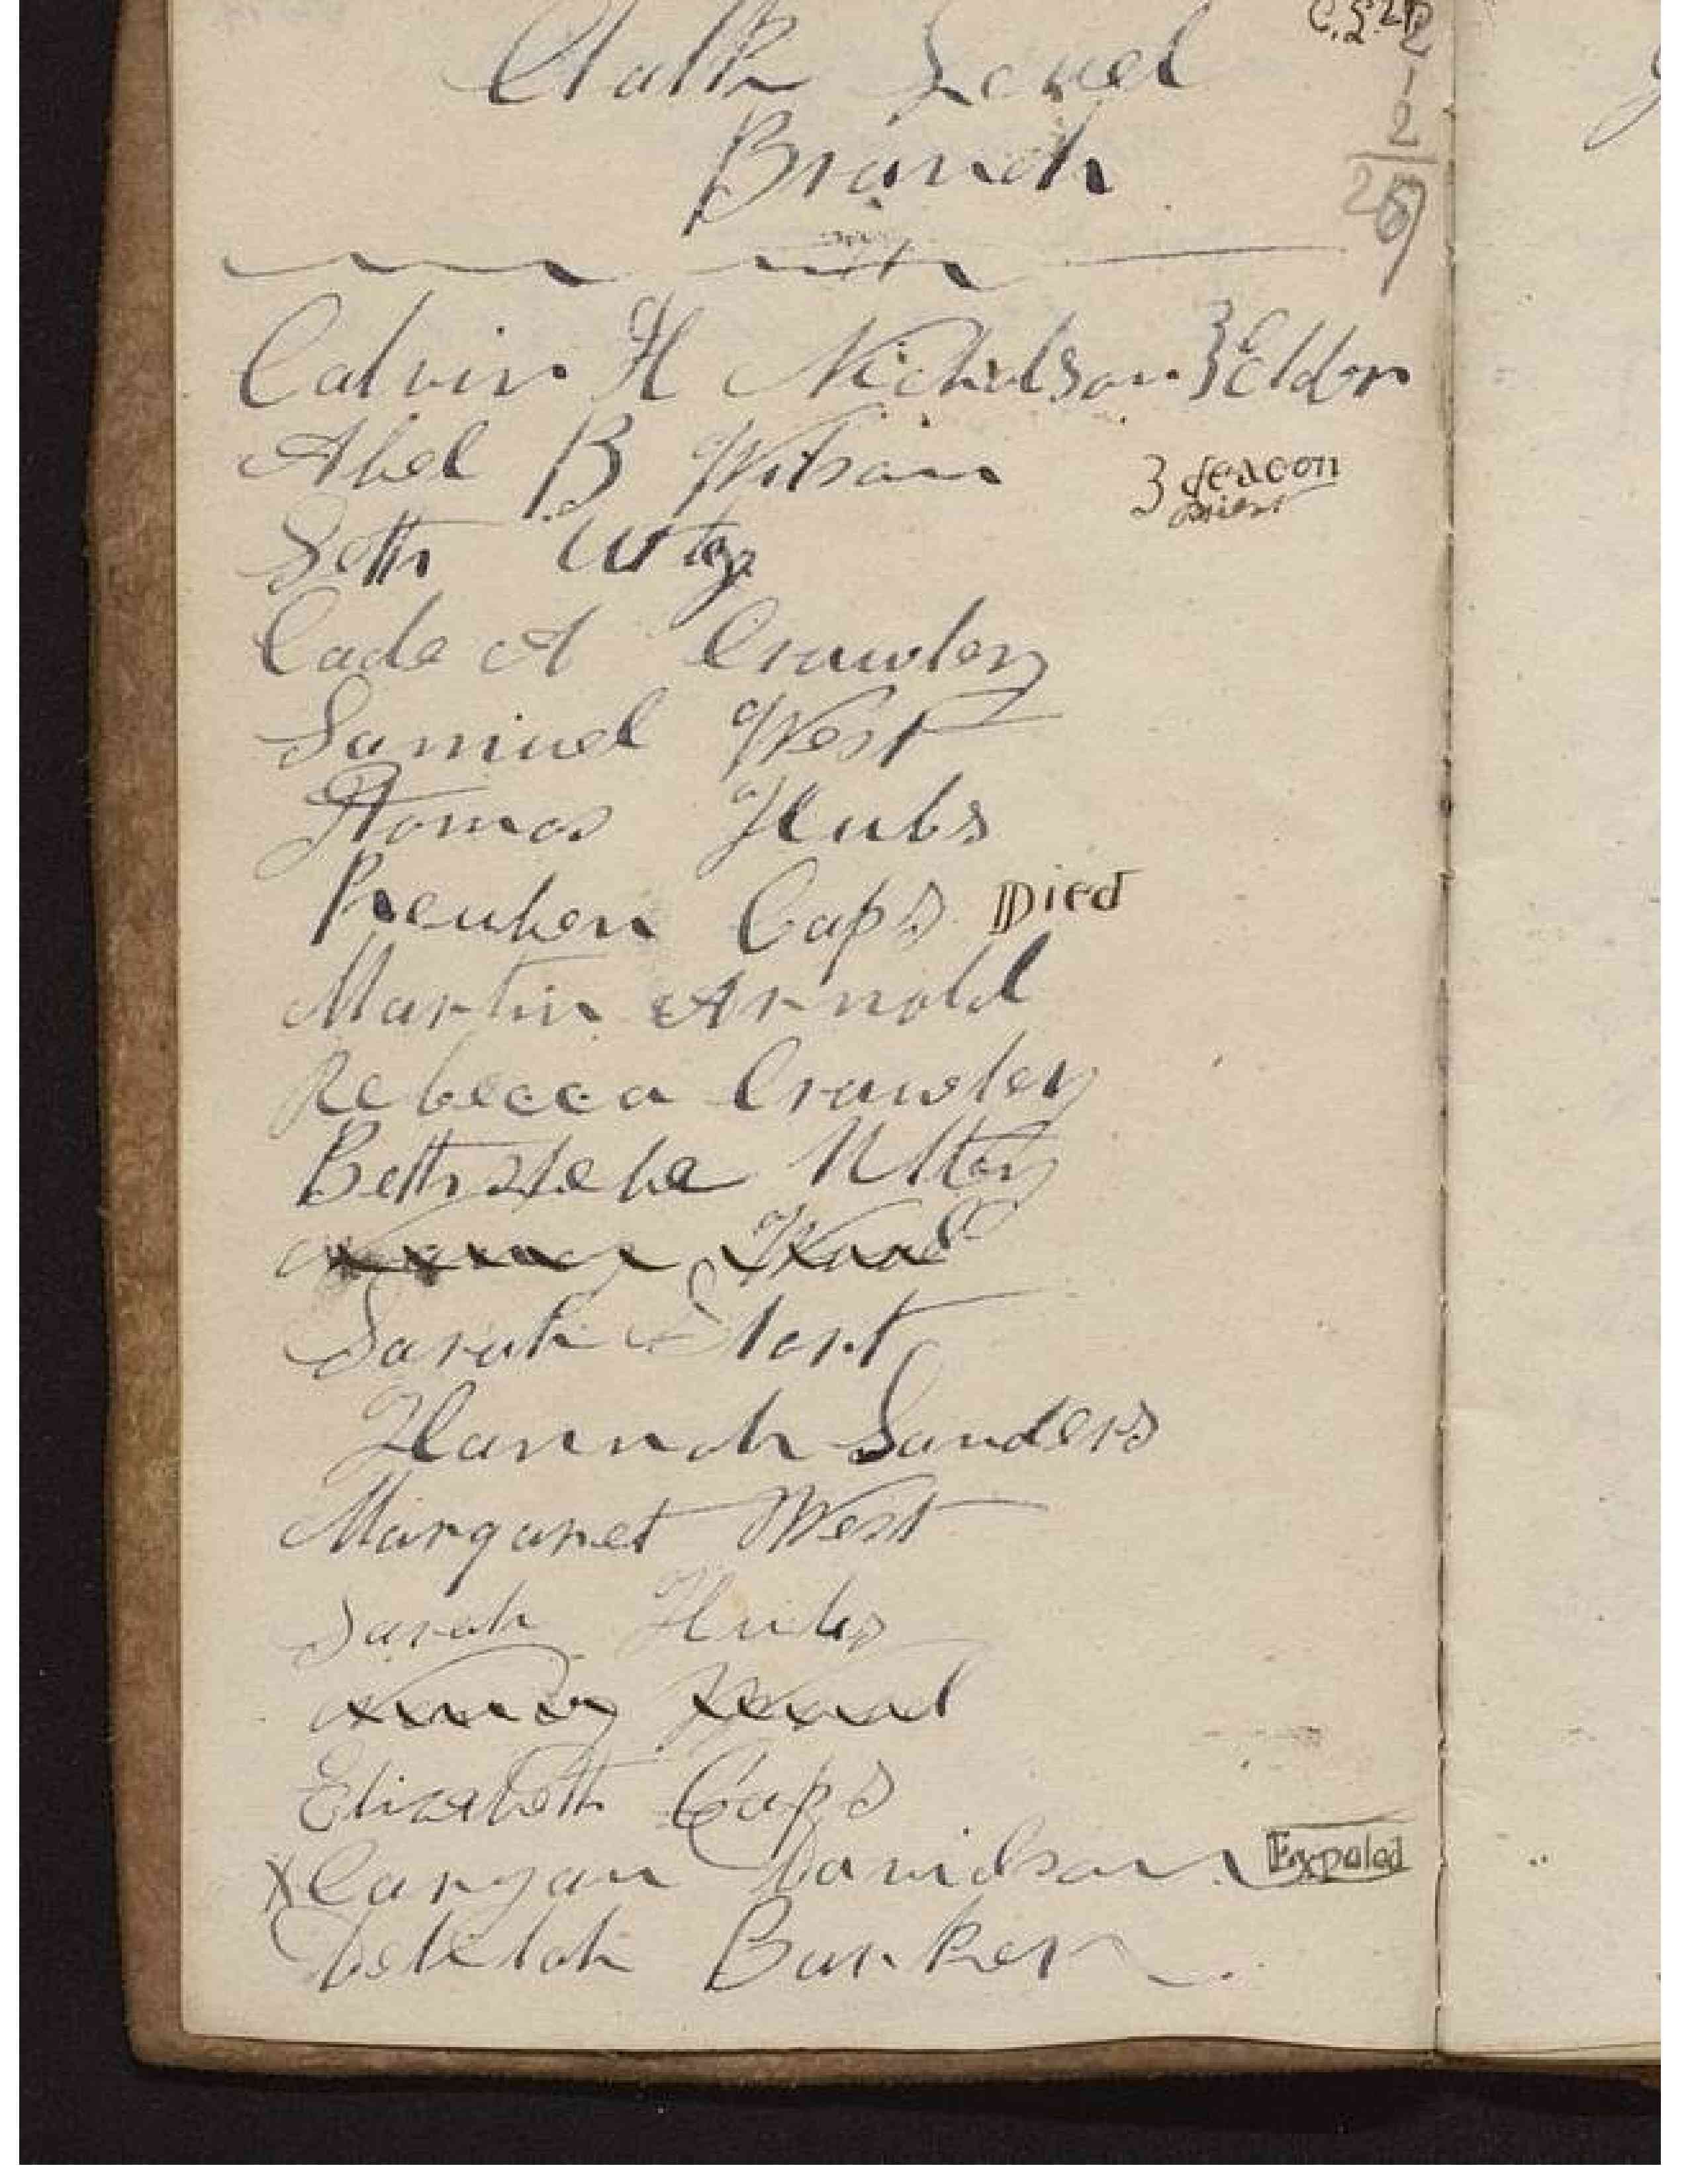 Chalk Level
Branch
2
1
2
Calvin H Nicholson } Elder
Abel B Wilson } deacon
Seth Utley
Cade A Crawley
Samuel West
Thomas Hubs
Reuben Caps Died
Martin Arnold
Rebecca Crawley
Bethshebe Utley
Sarah Stort
Hannah Sanders
Margaret West
Sarah Hubs
Elizabeth Caps
X Caryan Davidson Expeled
Delilah Barker